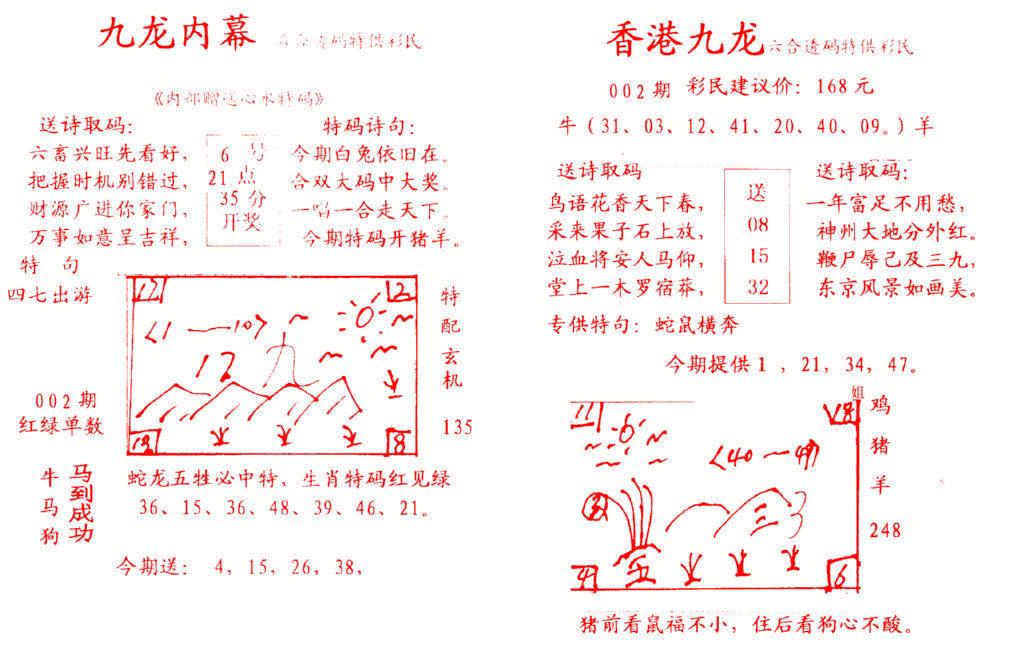 九龙内幕 六合透码特供彩民
《内部赠送心水特码》
送诗取码：
六畜兴旺先看好，
把握时机别错过，
财源广进你家门，
万事如意呈吉祥，
特 句
四七出游
6 号
21 点
35 分
开奖
特码诗句：
今期白兔依旧在。
合双大码中大奖。
一唱一合走天下。
今期特码开猪羊。
002期
红绿单数
12
2
<1——10>
12
九
8
特配玄机
135
牛马狗
马到成功
蛇龙五牲必中特，生肖特码红见绿
36、15、36、48、39、46、21。
今期送： 4，15，26，38，
香港九龙 六合透码特供彩民
002期 彩民建议价：168元
牛（31、03、12、41、20、40、09。）羊
送诗取码
鸟语花香天下春，
采来果子石上放，
泣血将安人马仰，
堂上一木罗宿莽，
送
08
15
32
送诗取码：
一年富足不用愁，
神州大地分外红。
鞭尸辱己及三九，
东京风景如画美。
专供特句：蛇鼠横奔
今期提供1 ，21，34，47。
11
姐
<40—49>
三
4
6
鸡
猪
羊
248
猪前看鼠福不小，住后看狗心不酸。